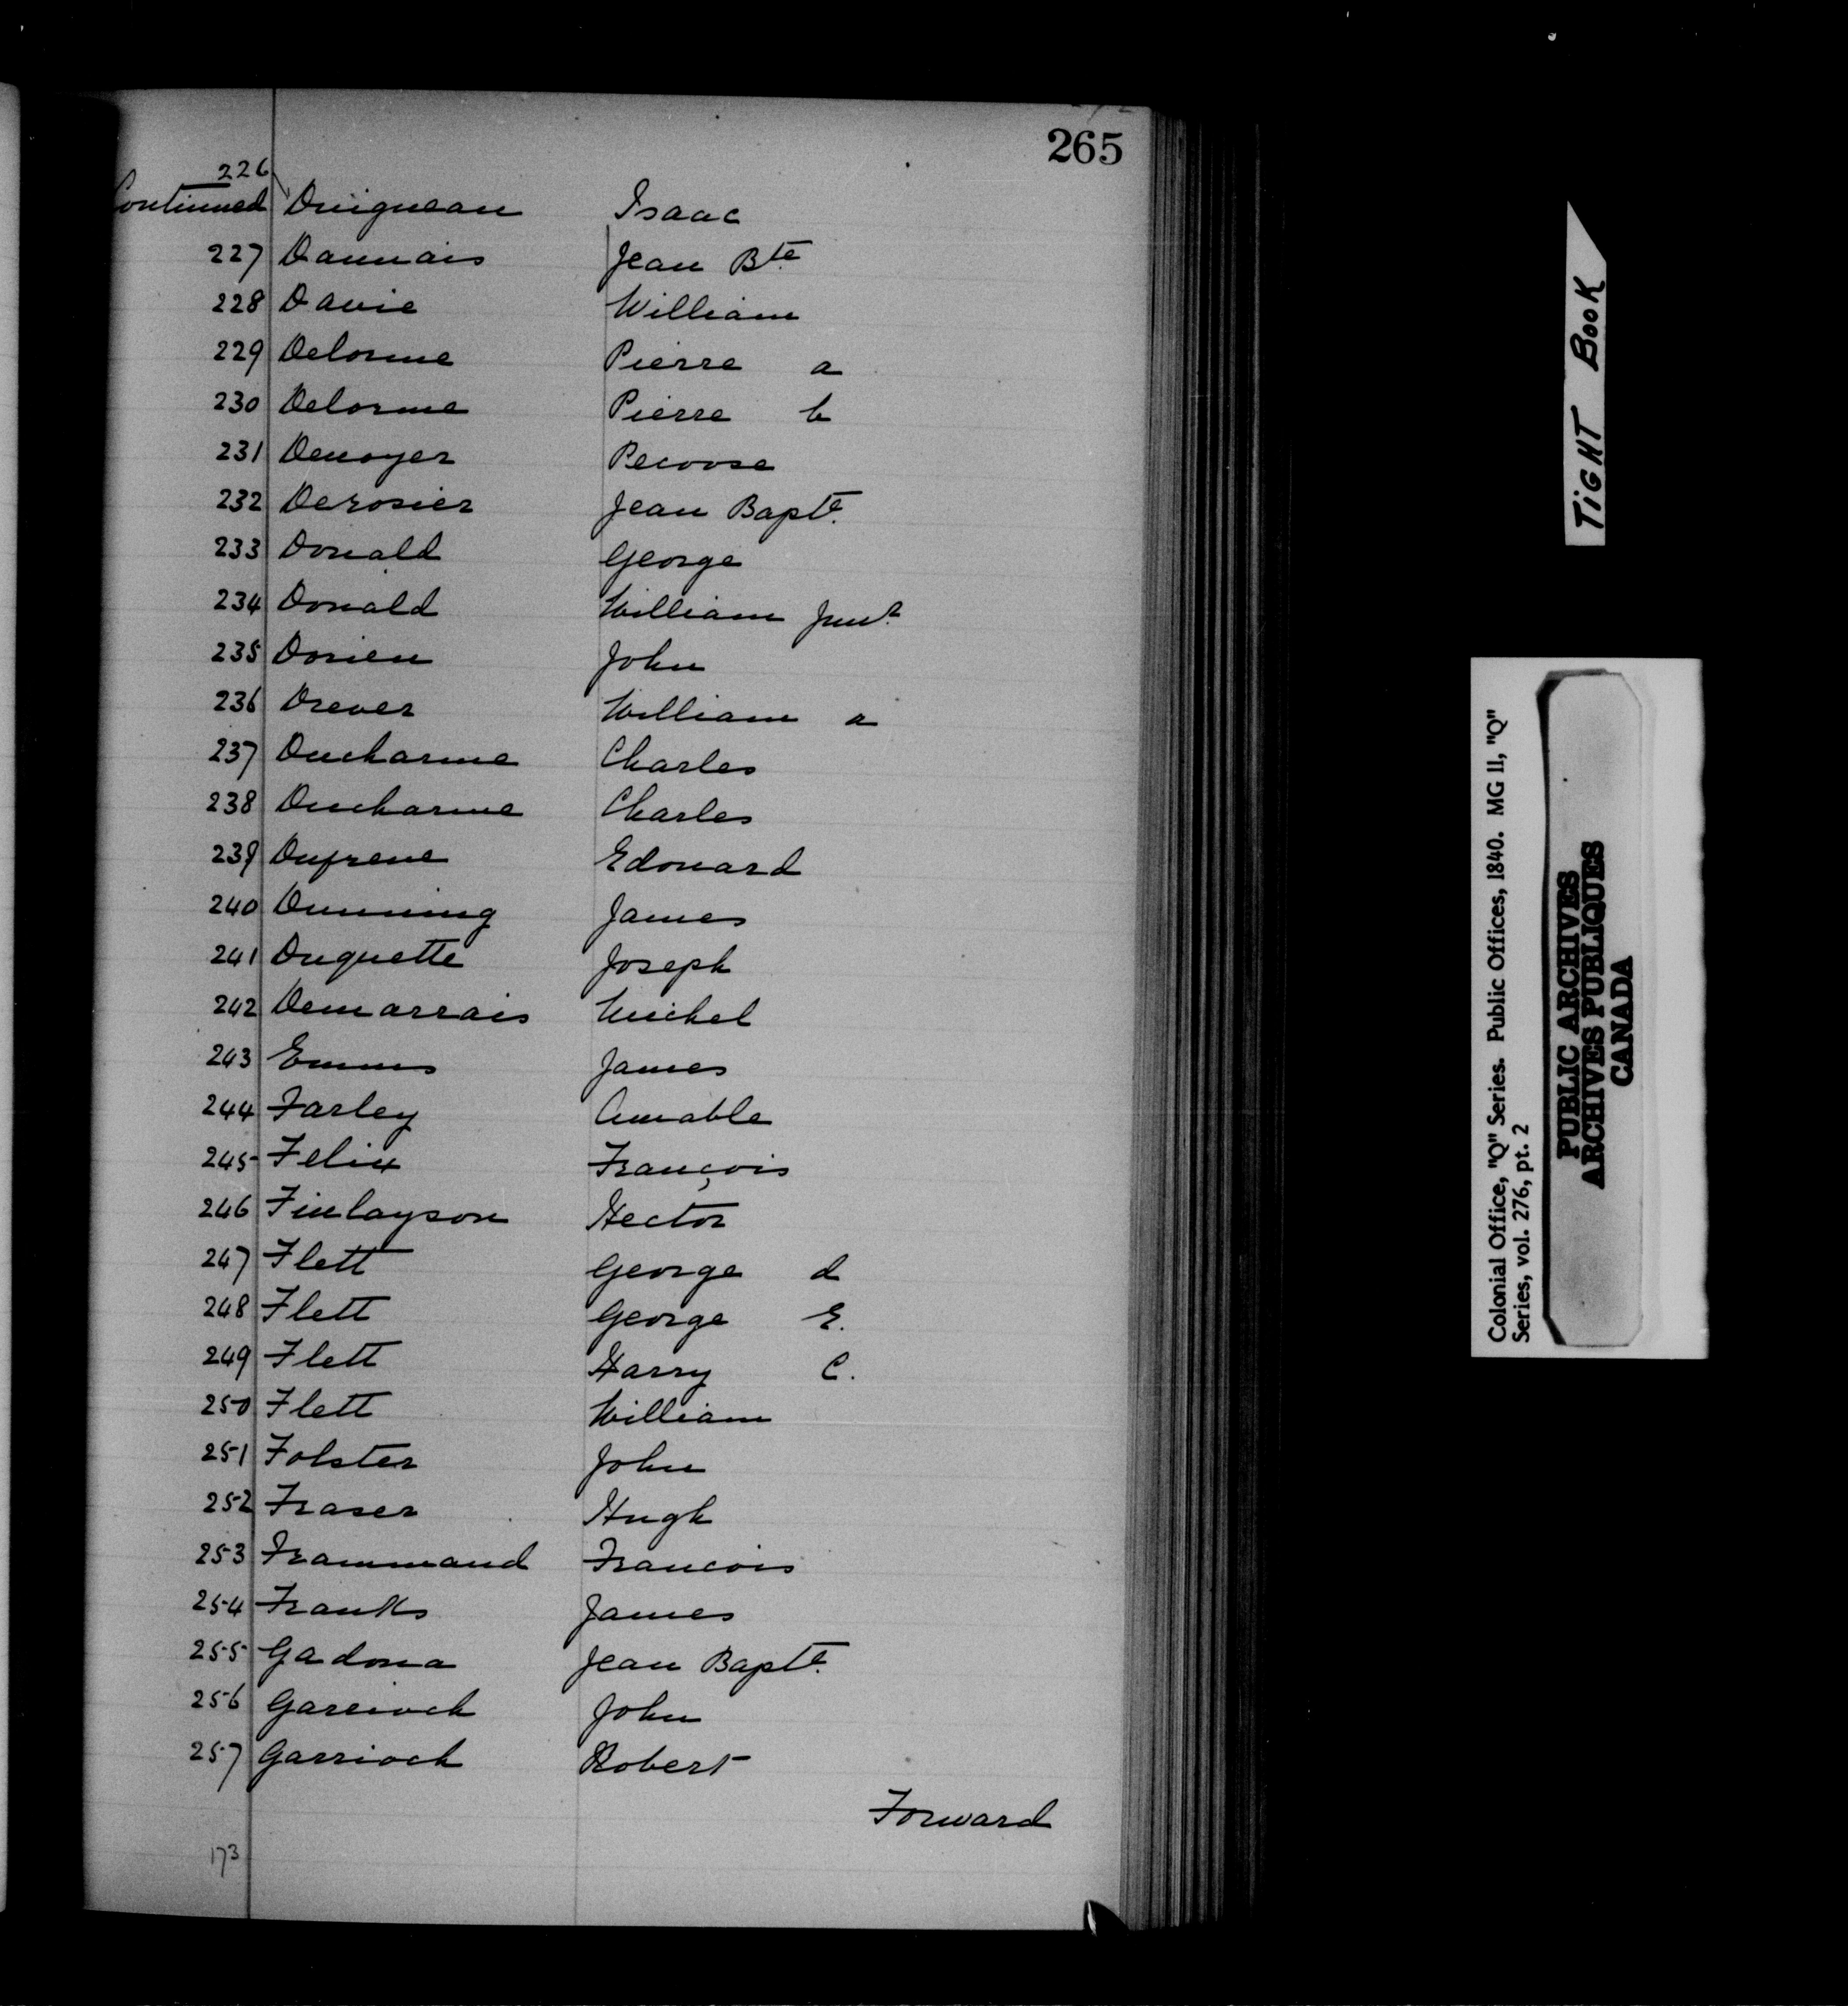 265
226
Continued Duigneau Isaac
227 Daunais Jean Bte
228 Davie William
229 Delorme Pierre a
230 Delorme Pierre b
231 Denoyer Pecoose
232 Derosier Jean Bapte.
233 Donald George
234 Donald William Junr.
235 Dorien John
236 Drever William a
237 Ducharme Charles
238 Ducharme Charles
239 Dufrene Edouard
240 Dunning James
241 Duquette Joseph
242 Demarrais Michel
243 Emms James
244 Farley Amable
245 Felix François
246 Finlayson Hector
247 Flett George d
248 Flett George E.
249 Flett Harry C.
250 Flett William
251 Folster John
252 Fraser Hugh
253 Frammand Francois
254 Franks James
255 Gadona Jean Bapte.
256 Garrioch John
257 Garrioch Robert
Forward
173
TIGHT BOOK
Colonial Office, "Q" Series. Public Offices, 1840. MG 11, "Q"
Series, vol. 276, pt. 2
PUBLIC ARCHIVES
ARCHIVES PUBLIQUES
CANADA